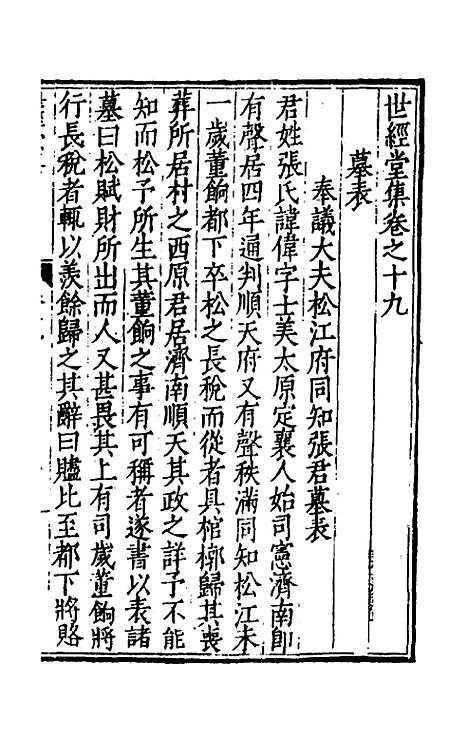 世經堂集卷之十九
墓表
奉議大夫松江府同知張君墓表
君姓張氏諱偉字士美太原定襄人始司憲濟南卽
有聲居四年通判順天府又有聲秩滿同知松江未
一歲董餉都下卒松之長稅而從者具棺槨歸其喪
葬所居村之西原君居濟南順天其政之詳予不能
知而松予所生其董餉之事有可稱者遂書以表諸
墓曰松賦財所出而人又甚畏其上有司歲董餉將
行長稅者輒以羨餘歸之其辭曰贐比至都下將賂